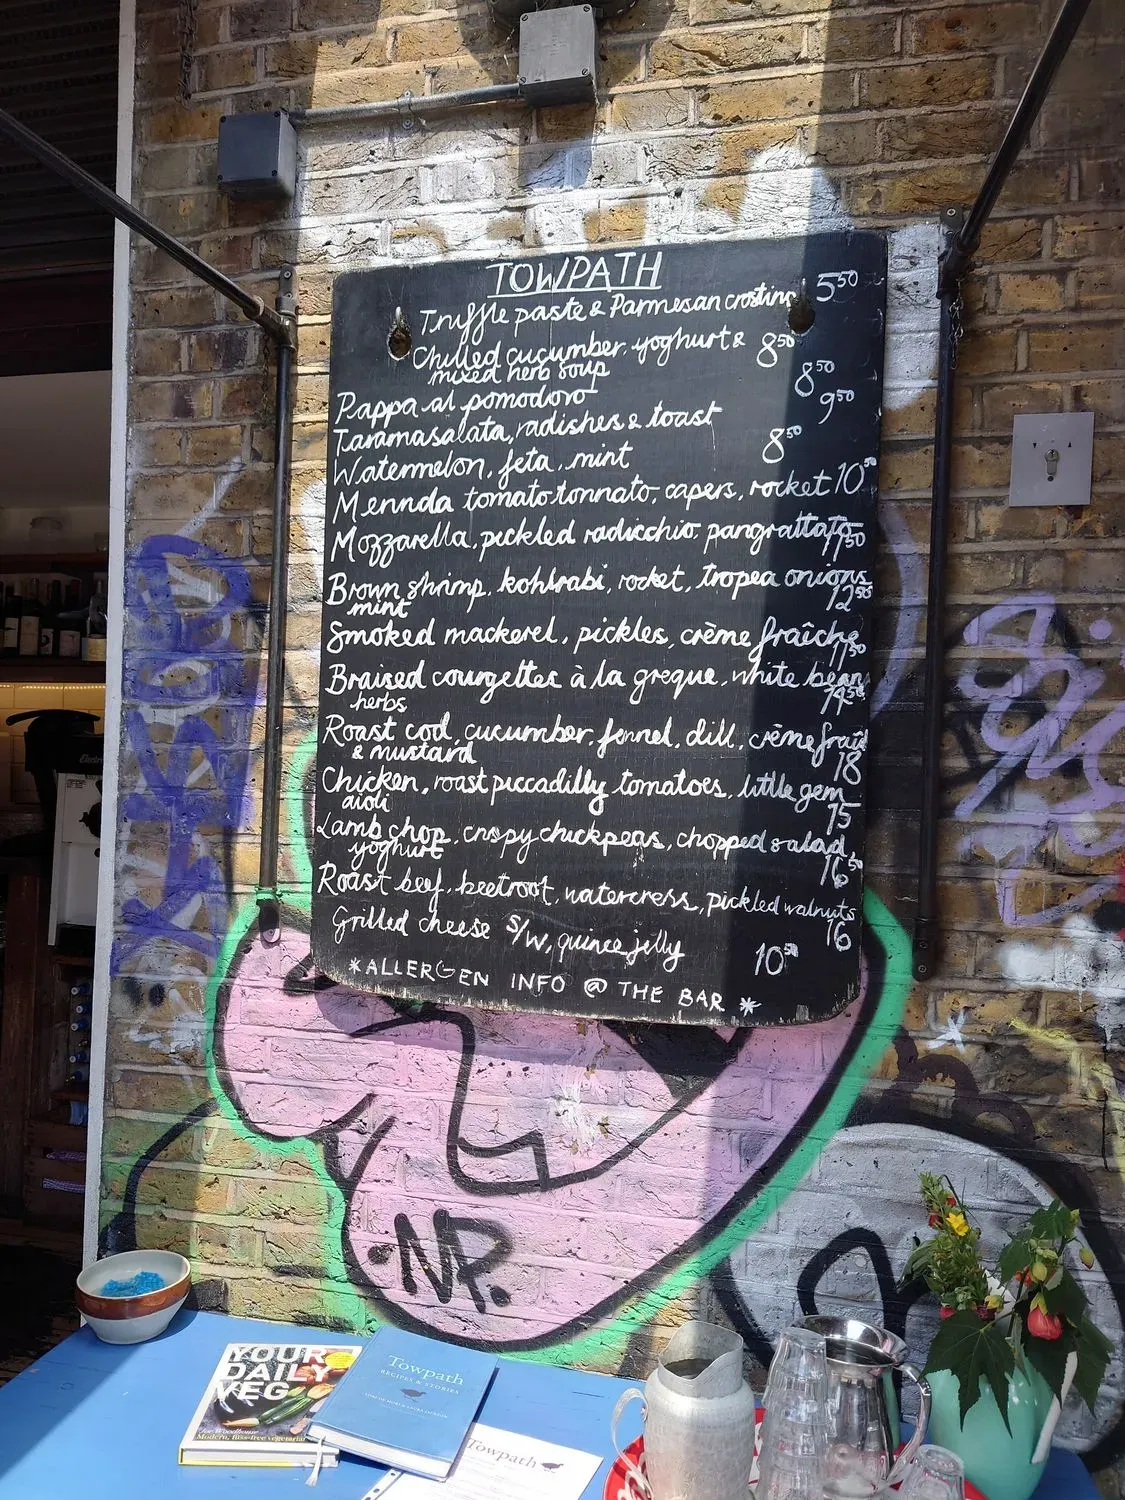 TOWPATH
Truffle paste & Parmesan crostini 5⁵⁰
Chilled cucumber, yoghurt & 8⁵⁰
mixed herb soup
Pappa al pomodoro 8⁵⁰
Taramasalata, radishes & toast 9⁵⁰
Watermelon, feta, mint 8⁵⁰
Merinda tomato tonnato, capers, rocket 10⁵⁰
Mozzarella, pickled radicchio, pangrattato
11⁵⁰
Brown shrimp, kohlrabi, rocket, tropea onions
mint 12⁵⁰
Smoked mackerel, pickles, crème fraîche
11⁵⁰
Braised courgettes à la greque, white beans
herbs 14⁵⁰
Roast cod, cucumber, fennel, dill, crème fraîche
& mustard 18
Chicken, roast piccadilly tomatoes, little gem
aioli 15
Lamb chop, crispy chickpeas, chopped salad,
yoghurt 16⁵⁰
Roast beef, beetroot, watercress, pickled walnuts
16
Grilled cheese s/w, quince jelly 10⁵⁰
*ALLERGEN INFO @ THE BAR *
NP.
YOUR
DAILY
VEG
Joe Woodhouse
Modern, fuss-free vegetarian
Towpath
RECIPES & STORIES
LORI DE MORI & LAURA JACKSON
Towpath